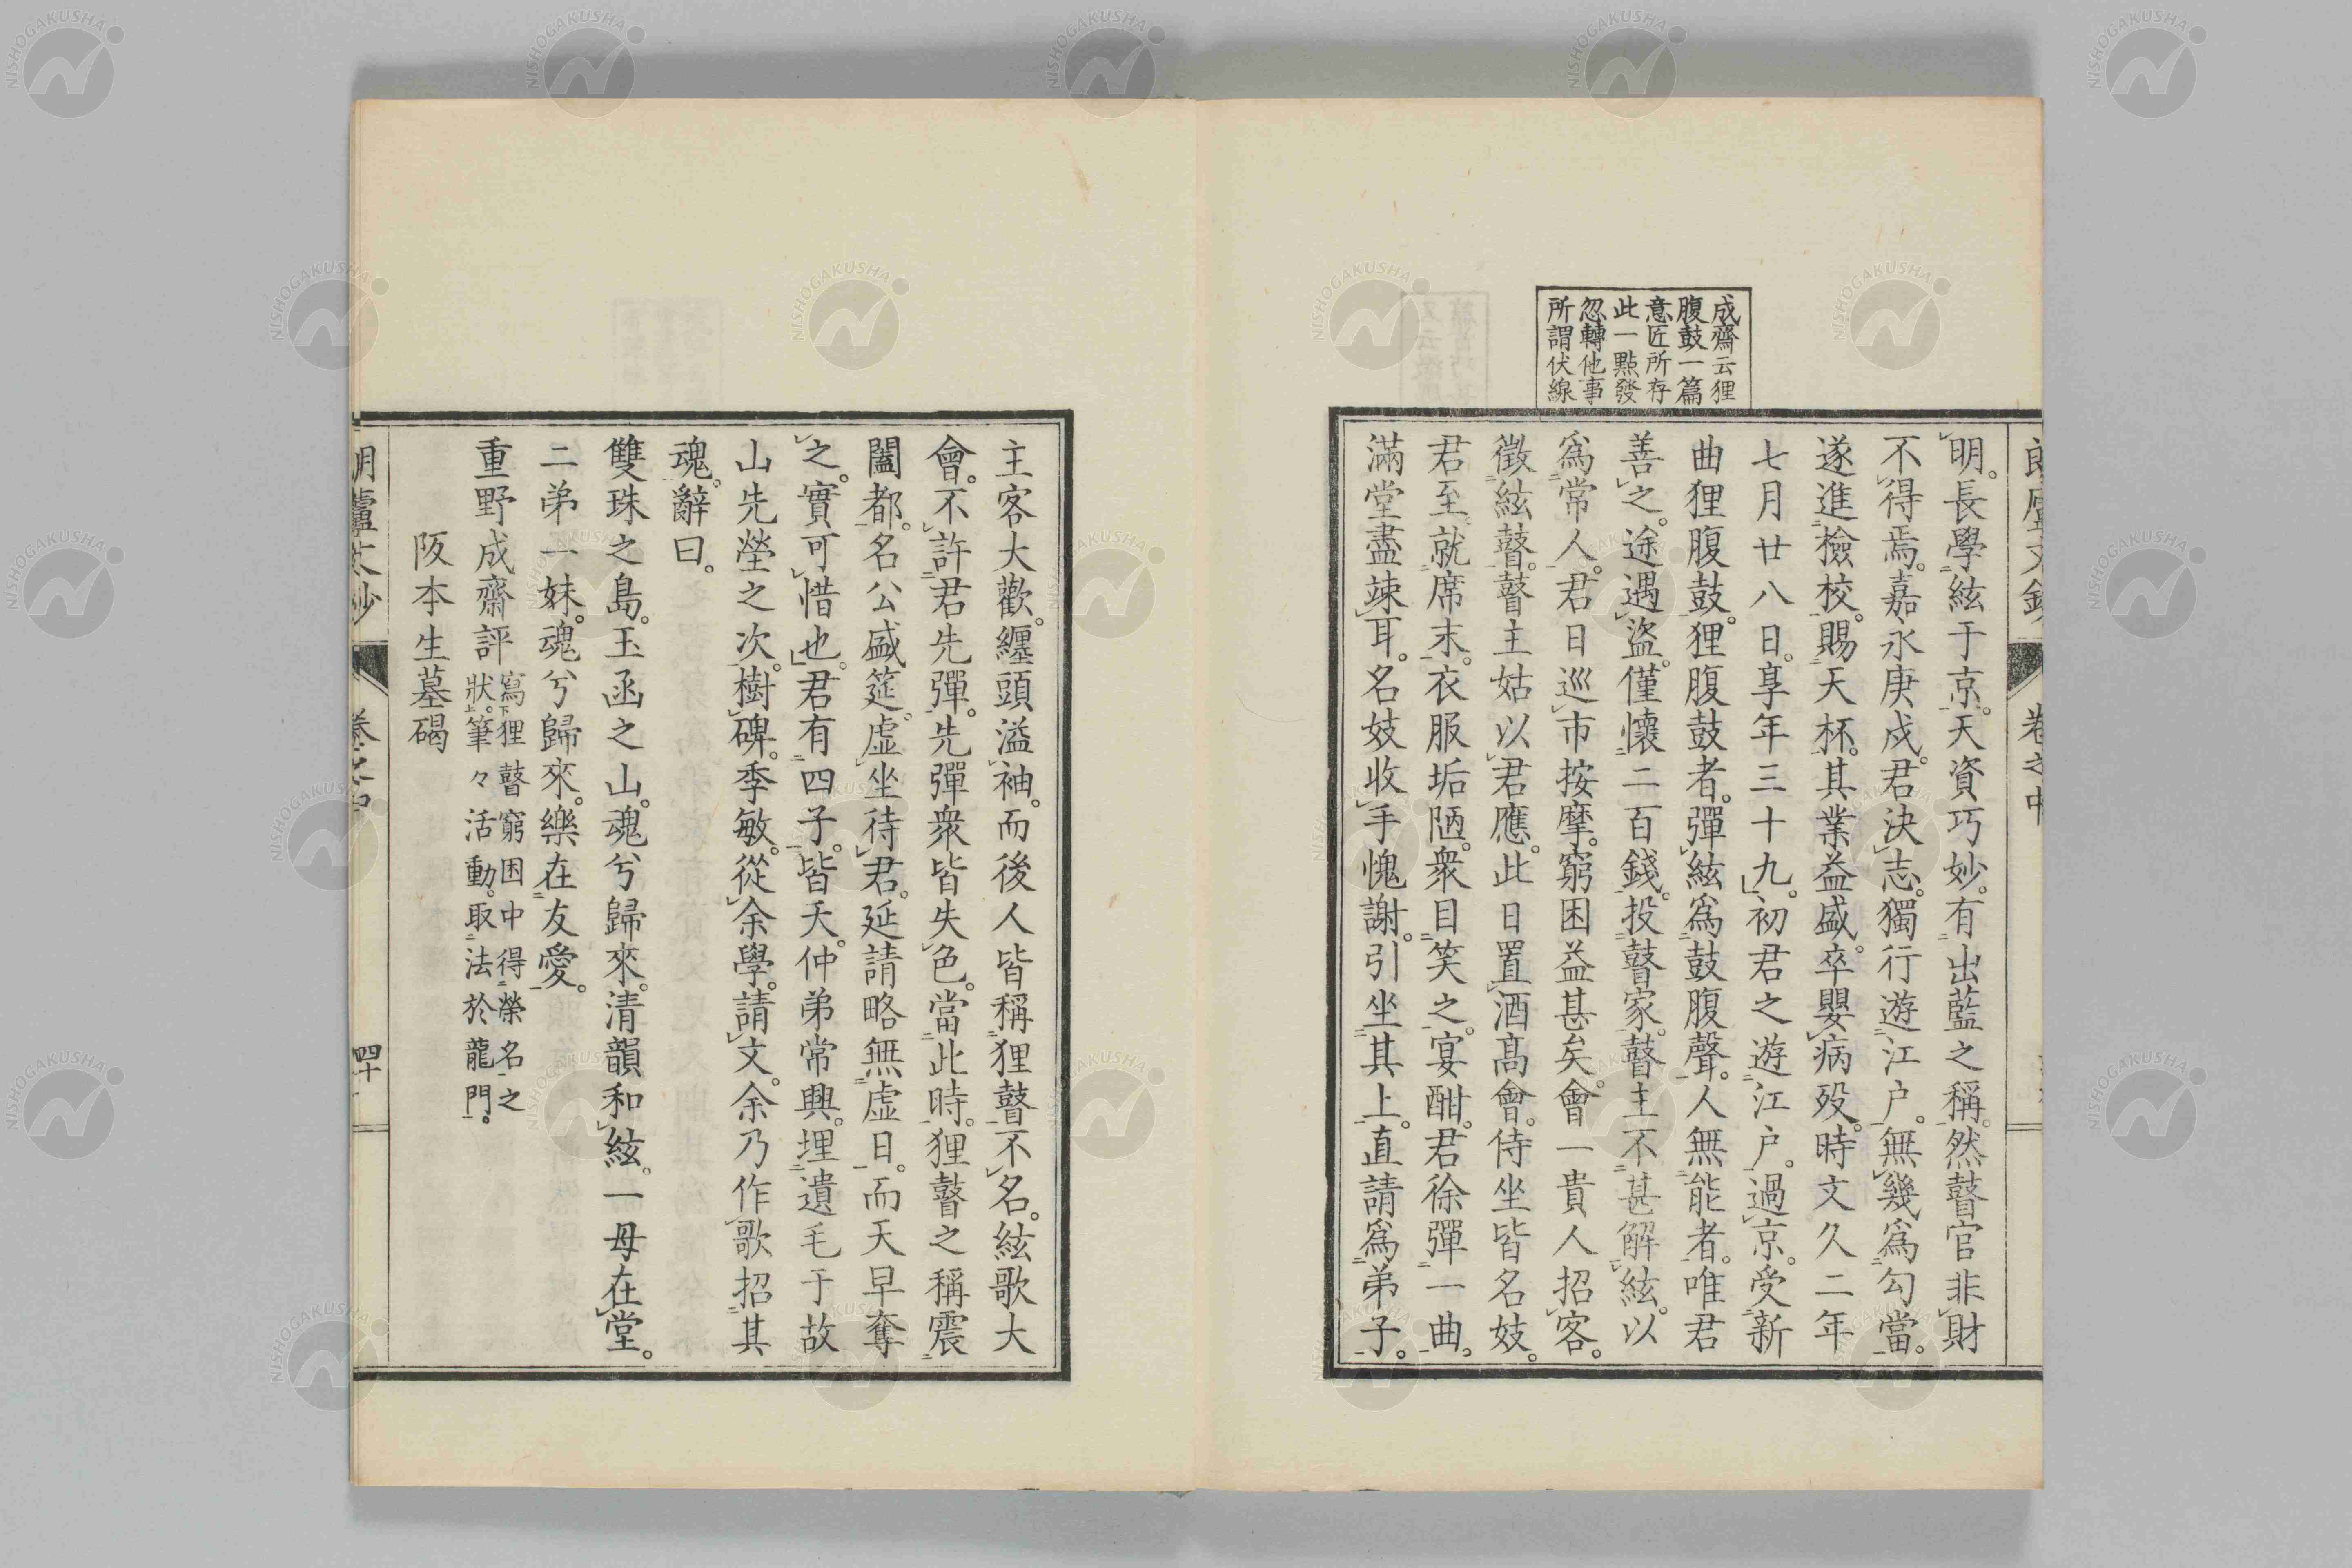 成齋云狸
腹鼓一篇
意匠所存
此一點發
忽轉他事
所謂伏線
明。長學絃于京。天資巧妙。有出藍之稱。然瞽官非財
不得焉。嘉永庚戌。君決志。獨行遊江户。無幾爲勾當。
遂進撿校。賜天杯。其業益盛。卒嬰病歿。時文久二年
七月廿八日。享年三十九。初君之遊江户。過京。受新
曲狸腹鼓。狸腹鼓者。彈絃爲鼓腹聲。人無能者。唯君
善之。途遇盜。僅懷二百錢。投瞽家。瞽主不甚解絃。以
爲常人。君日巡市按摩。窮困益甚矣。會一貴人招客。
徵絃瞽。瞽主姑以君應。此日置酒高會。侍坐皆名妓。
君至。就席末。衣服垢陋。衆目笑之。宴酣。君徐彈一曲。
滿堂盡竦耳。名妓收手愧謝。引坐其上。直請爲弟子。
主客大歡。纒頭溢袖。而後人皆稱狸瞽不名。絃歌大
會。不許君先彈。先彈衆皆失色。當此時。狸瞽之稱震
闔都。名公盛筵。虛坐待君。延請略無虛日。而天早奪
之。實可惜也。君有四子。皆夭。仲弟常興。埋遺毛于故
山先塋之次。樹碑。季敏。從余學。請文。余乃作歌招其
魂。辭曰。
雙珠之島。玉函之山。魂兮歸來。清韻和絃。一母在堂。
二弟一妹。魂兮歸來。樂在友愛。
重野成齋評 寫狸瞽窮困中得榮名之
狀。筆々活動。取法於龍門。
阪本生墓碣
卷之中
四十
NISHOGAKUSHA